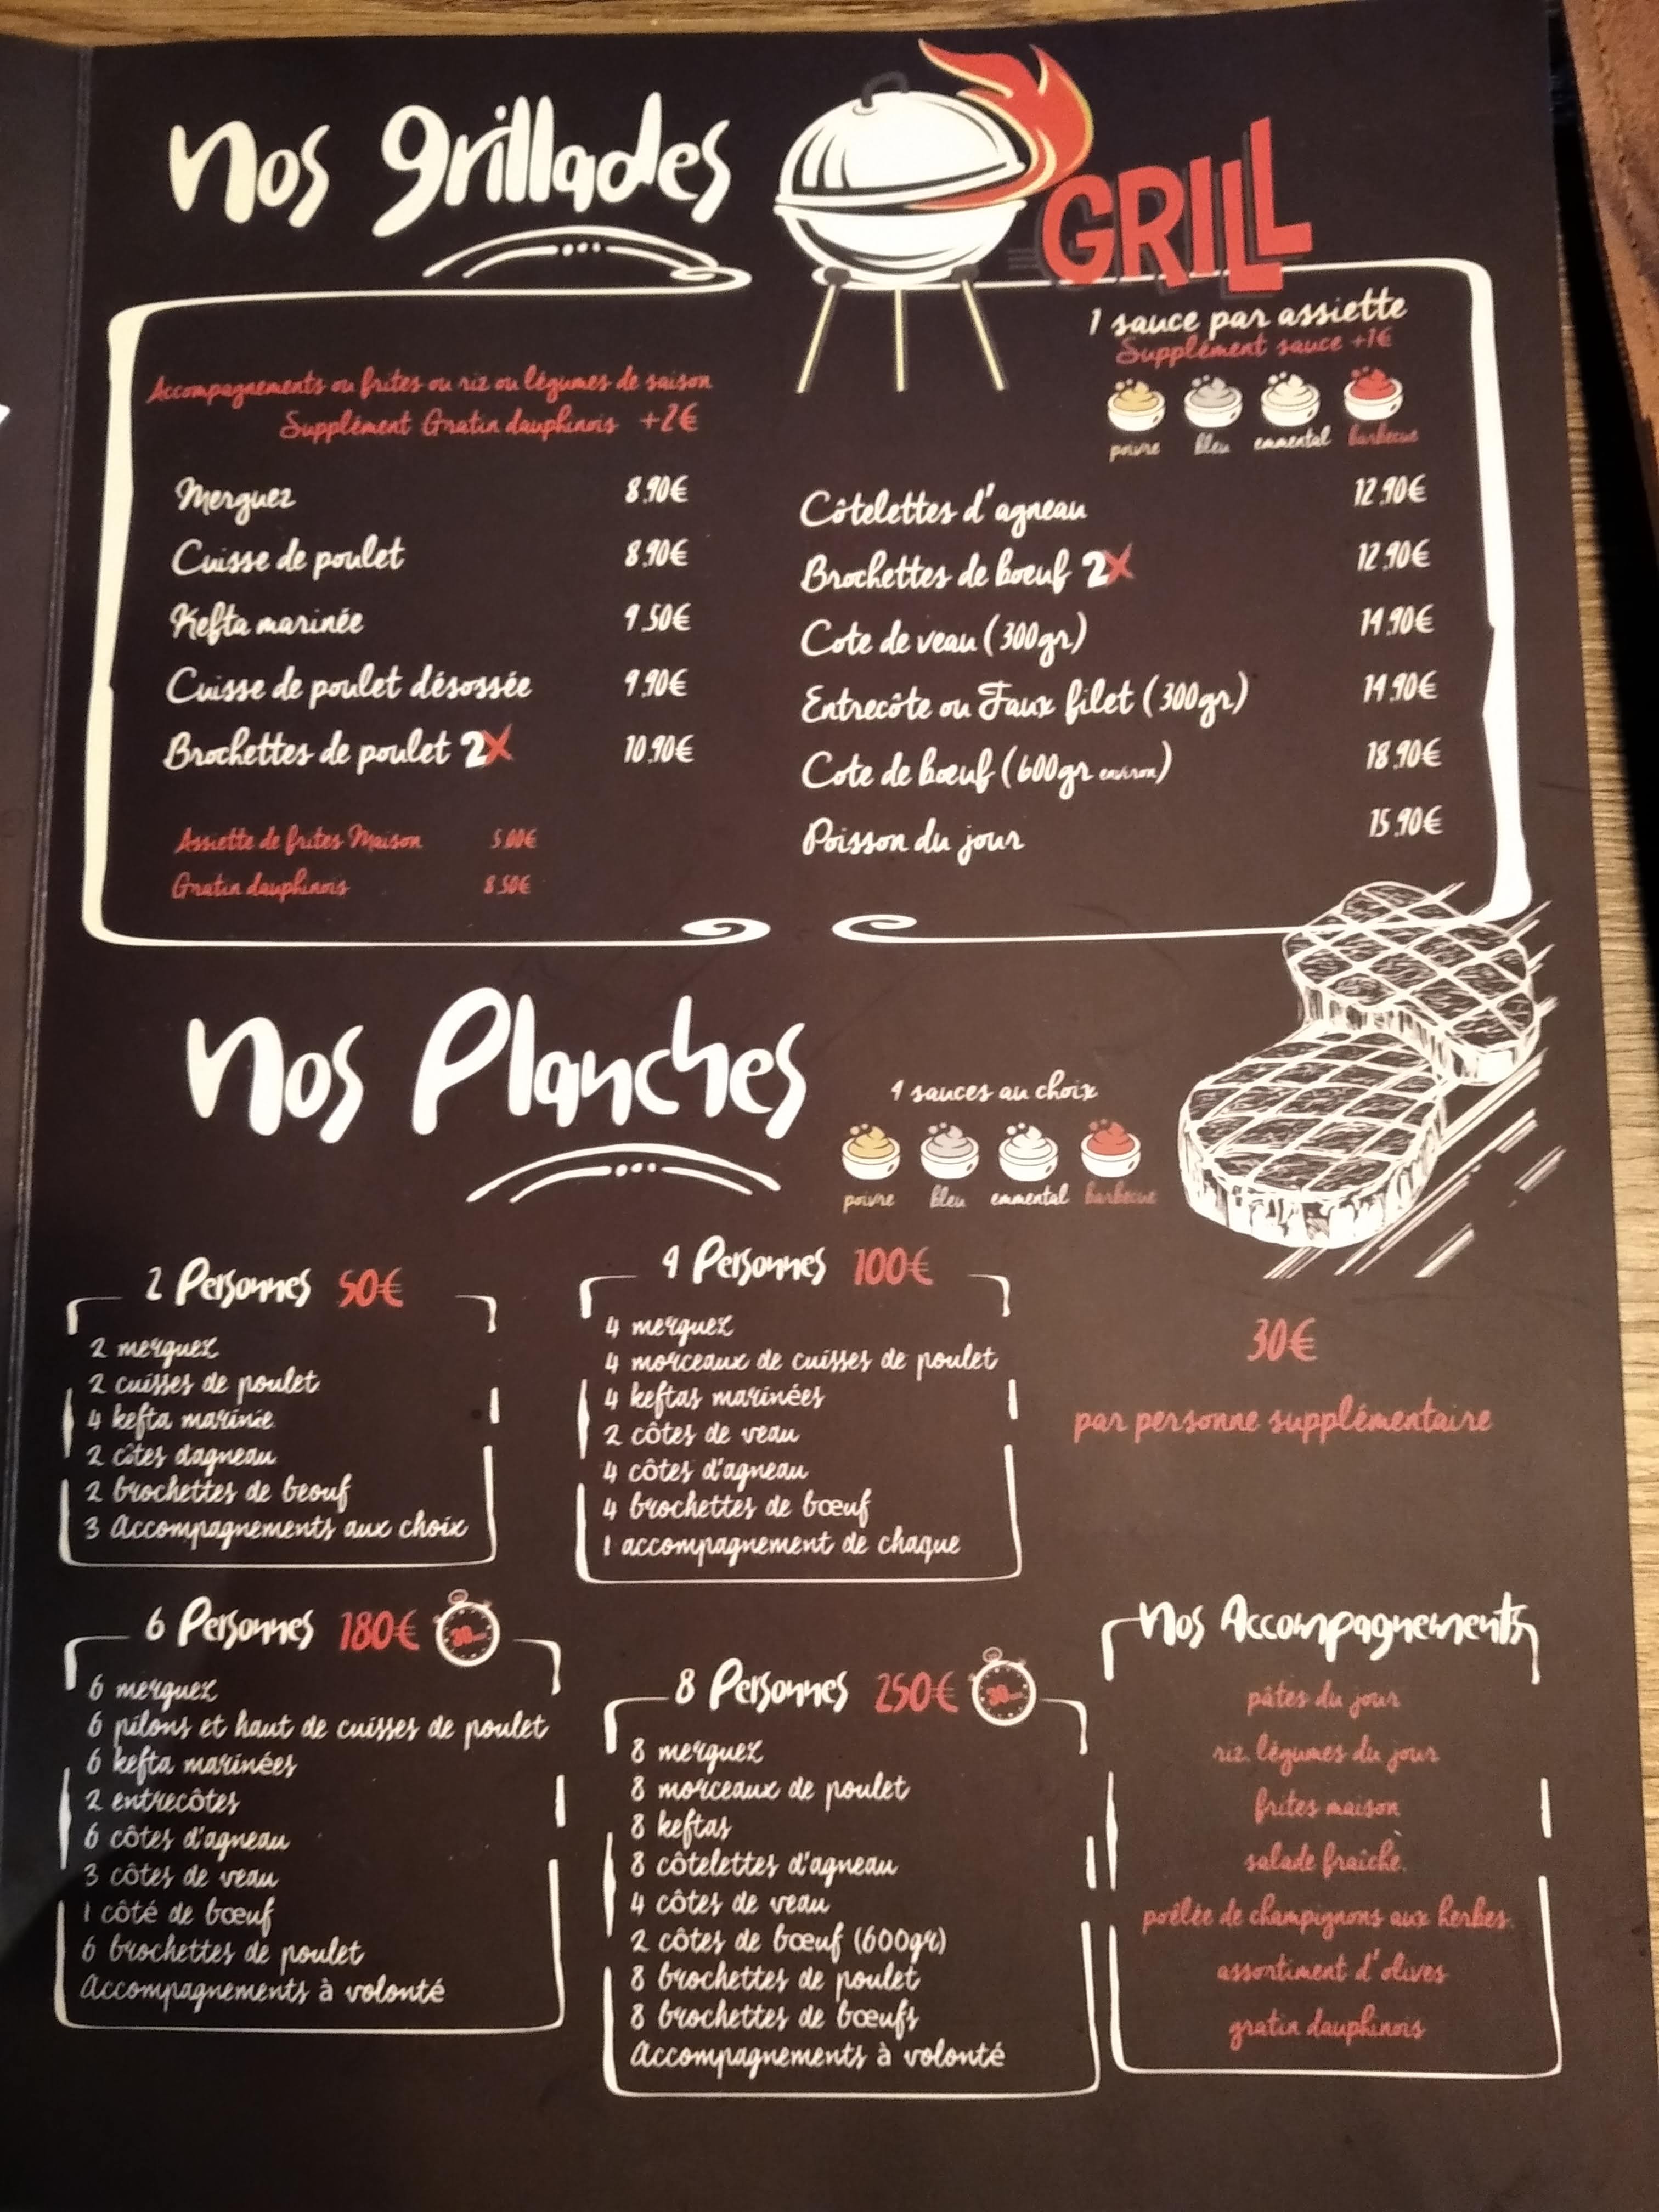 Nos grillades
GRILL
1 sauce par assiette
Supplément sauce +1€
poivre bleu emmental barbecue
Accompagnements ou frites ou riz ou légumes de saison
Supplément Gratin dauphinois +2€
Merguez 8.90€
Cuisse de poulet 8.90€
Kefta marinée 9.50€
Cuisse de poulet désossée 9.90€
Brochettes de poulet 2X 10.90€
Assiette de frites Maison 5.00€
Gratin dauphinois 8.50€
Côtelettes d'agneau 12.90€
Brochettes de boeuf 2X 12.90€
Cote de veau (300gr) 14.90€
Entrecôte ou Faux filet (300gr) 14.90€
Cote de bœuf (600gr environ) 18.90€
Poisson du jour 15.90€
Nos Planches
4 sauces au choix
poivre bleu emmental barbecue
2 Personnes 50€
2 merguez
2 cuisses de poulet
4 kefta marinie
2 côtes dagneau
2 brochettes de beouf
3 Accompagnements aux choix
4 Personnes 100€
4 merguez
4 morceaux de cuisses de poulet
4 keftas marinées
2 côtes de veau
4 côtes d'agneau
4 brochettes de bœuf
1 accompagnement de chaque
30€
par personne supplémentaire
6 Personnes 180€
6 merguez
6 pilons et haut de cuisses de poulet
6 kefta marinées
2 entrecôtes
6 côtes d'agneau
3 côtes de veau
1 côté de bœuf
6 brochettes de poulet
Accompagnements à volonté
8 Personnes 250€
8 merguez
8 morceaux de poulet
8 keftas
8 côtelettes d'agneau
4 côtes de veau
2 côtes de bœuf (600gr)
8 brochettes de poulet
8 brochettes de bœufs
Accompagnements à volonté
Nos Accompagnements
pâtes du jour
riz. légumes du jour
frites maison
salade fraîche.
poêlée de champignons aux herbes.
assortiment d'olives
gratin dauphinois